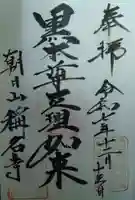 奉拝
令和七年十二月十三日
黒本尊立理如来
朝日山稱名寺